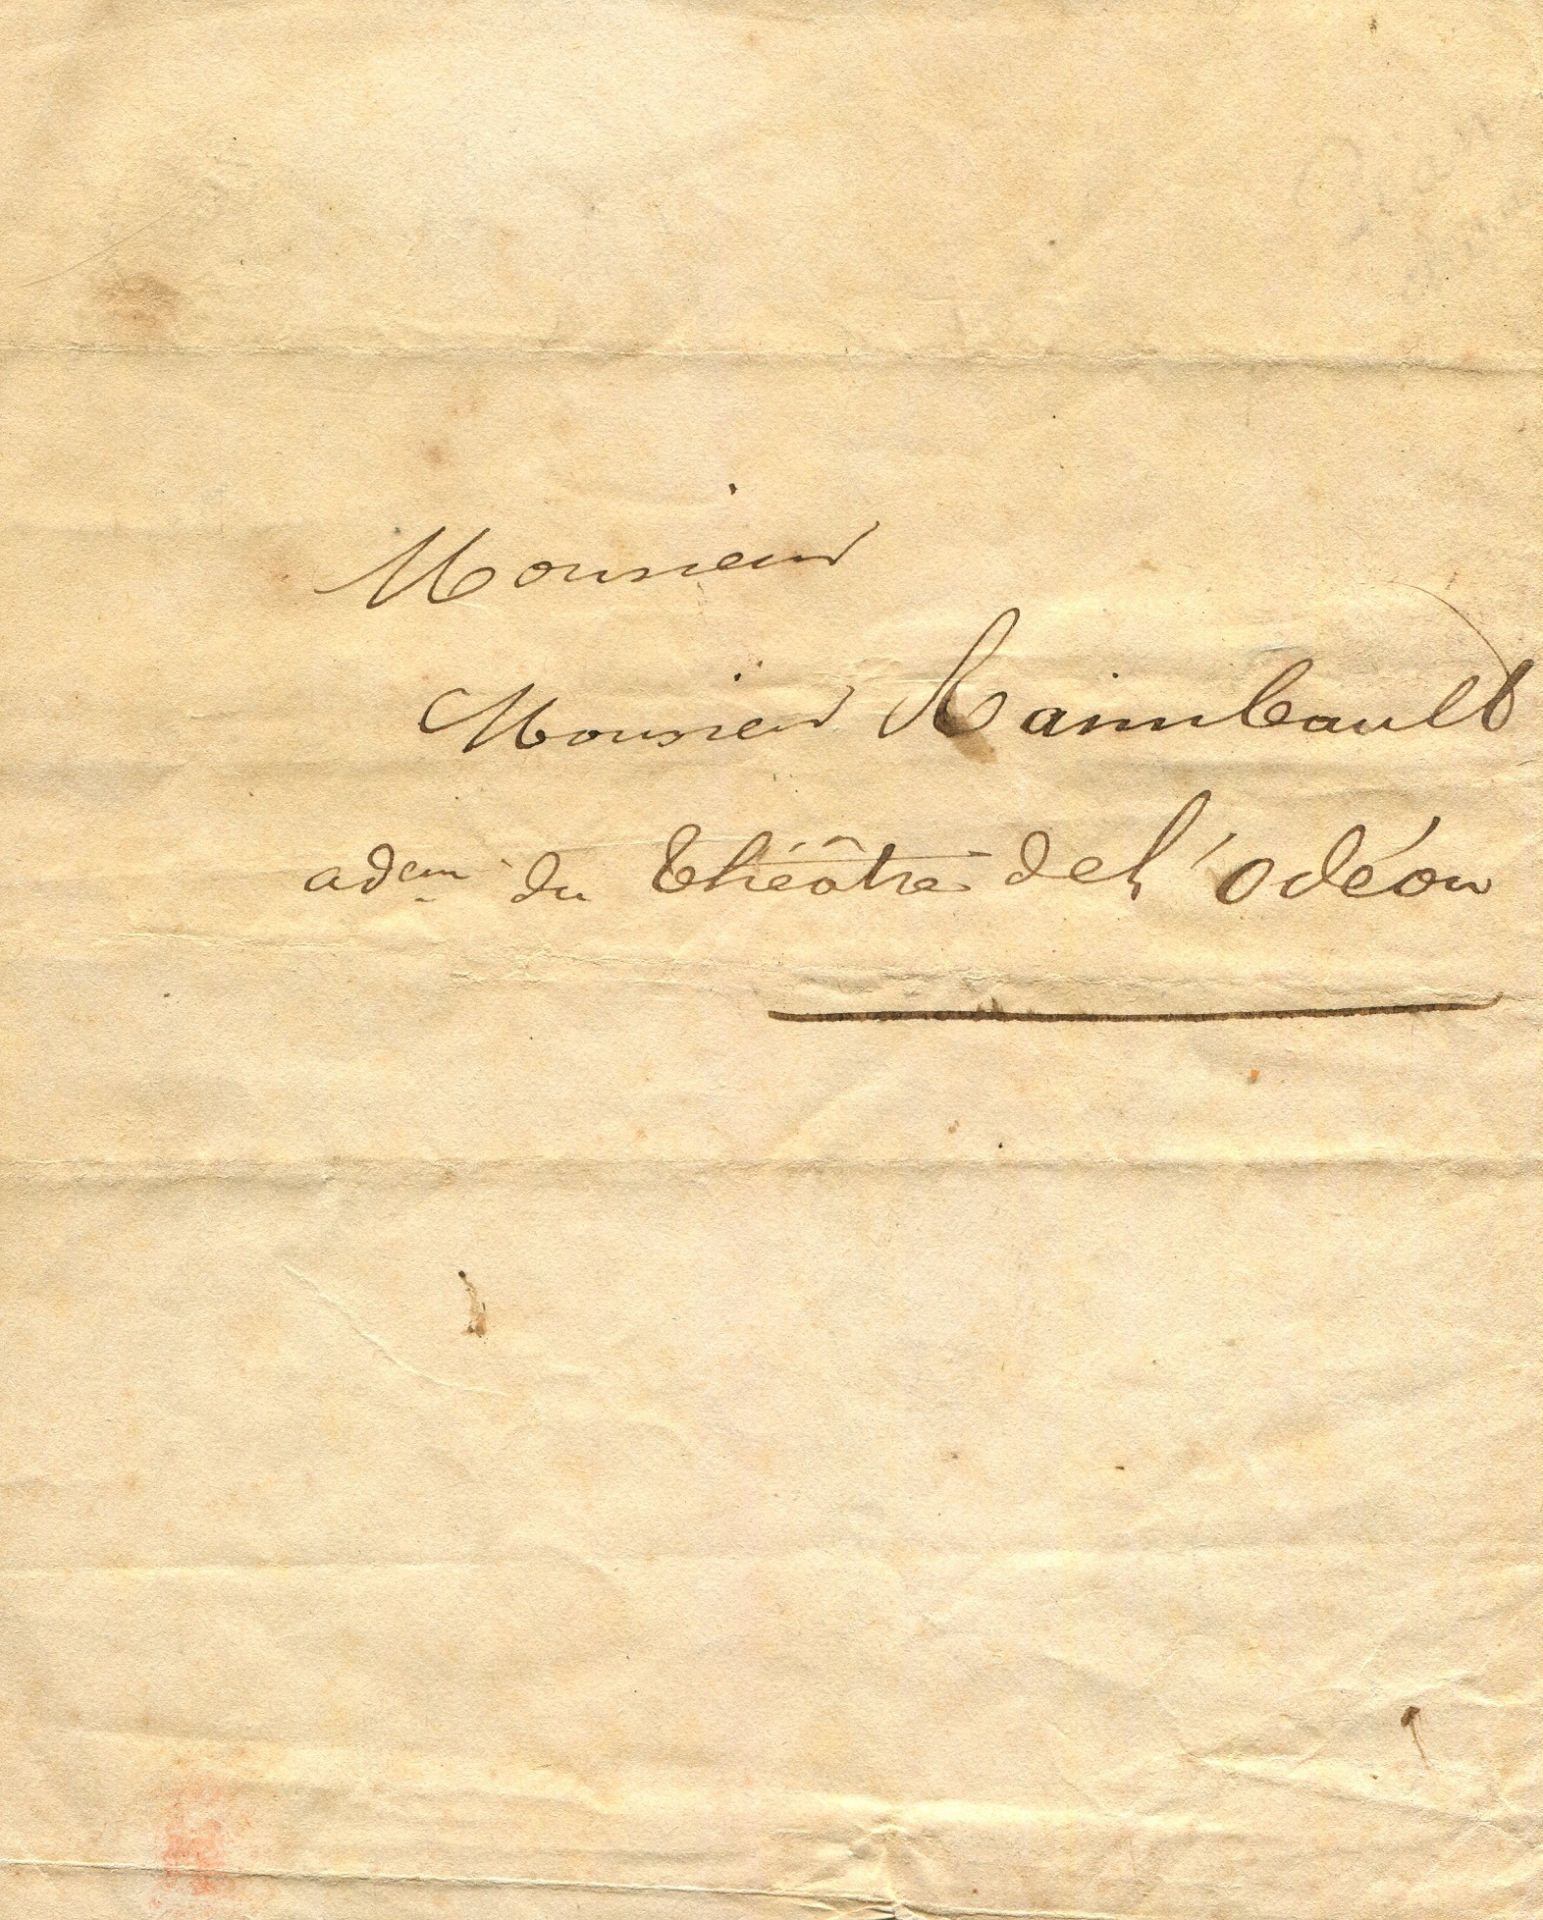 Monsieur
Monsieur Raimbault
adm. du Théâtre de l'Odéon